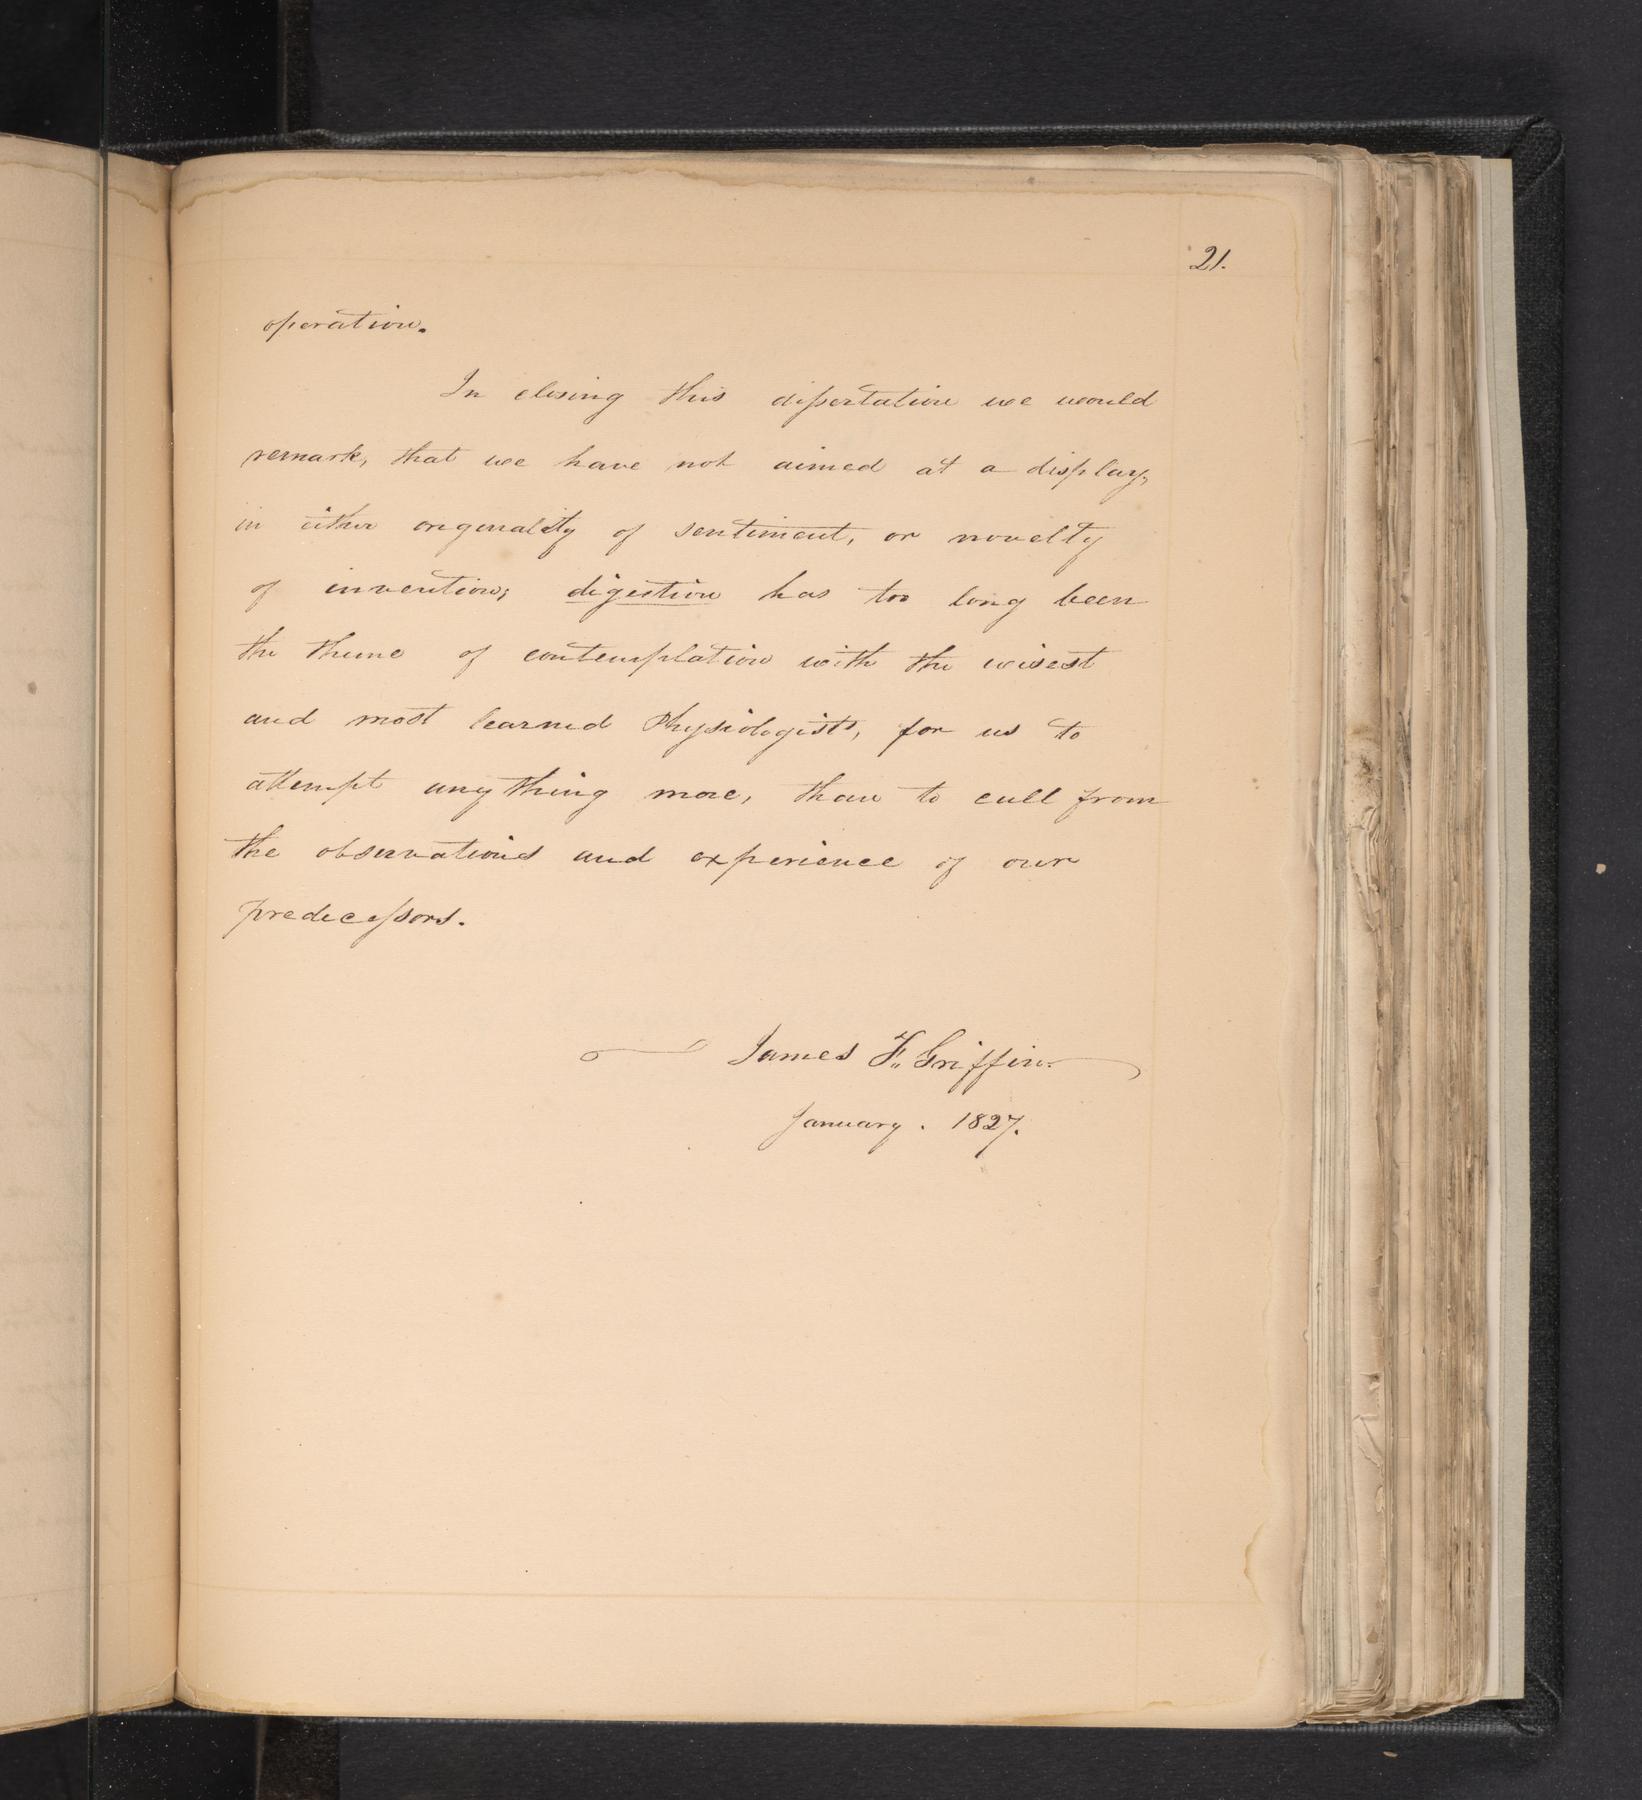 21.
operation.
In closing this dissertation we would
remark, that we have not aimed at a display,
in either originality of sentiment, or novelty
of invention; digestion has too long been
the theme of contemplation with the wisest
and most learned Physiologists, for us to
attempt any thing more, than to cull from
the observations and experience of our
predecessors.
James F. Griffin.
January. 1827.